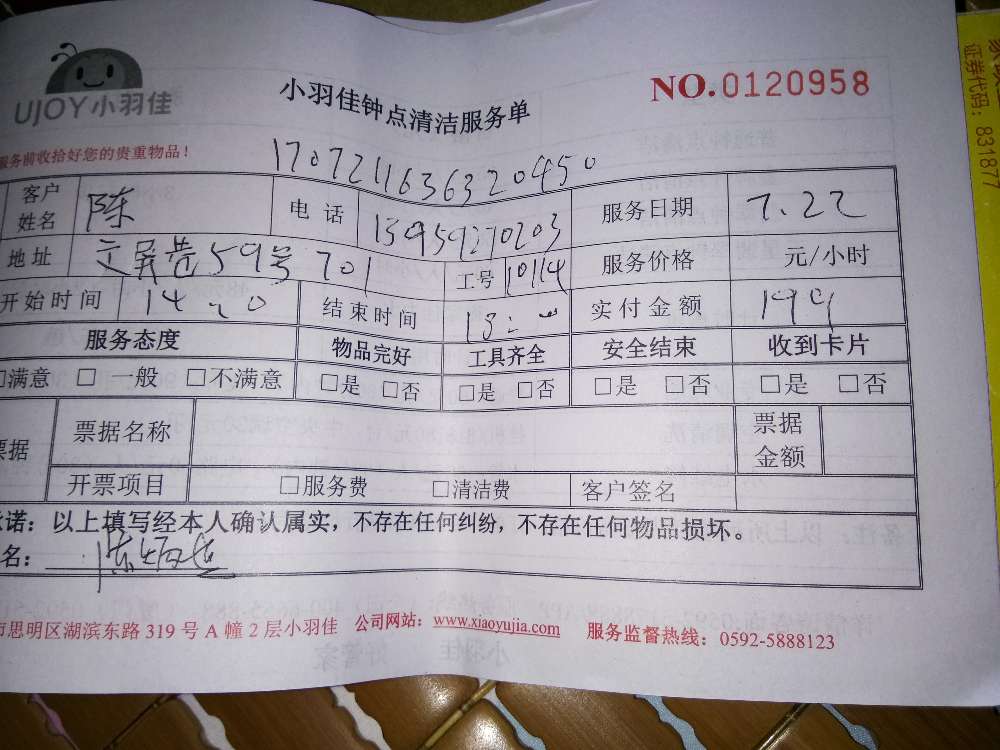 UJOY小羽佳
小羽佳钟点清洁服务单
NO.0120958
服务前收拾好您的贵重物品！
17072116363 20450
客户姓名 陈 电话 13959270203 服务日期 7.22
地址 文屏巷59号701 工号 10114 服务价格 元/小时
开始时间 14 结束时间 实付金额 199
服务态度 物品完好 工具齐全 安全结束 收到卡片
□满意 □一般 □不满意 □是 □否 □是 □否 □是 □否 □是 □否
票据 票据名称 票据金额
开票项目 □服务费 □清洁费 客户签名
承诺：以上填写经本人确认属实，不存在任何纠纷，不存在任何物品损坏。
名：陈
市思明区湖滨东路 319 号 A 幢 2 层小羽佳 公司网站：www.xiaoyujia.com 服务监督热线：0592-5888123
证券代码：831877